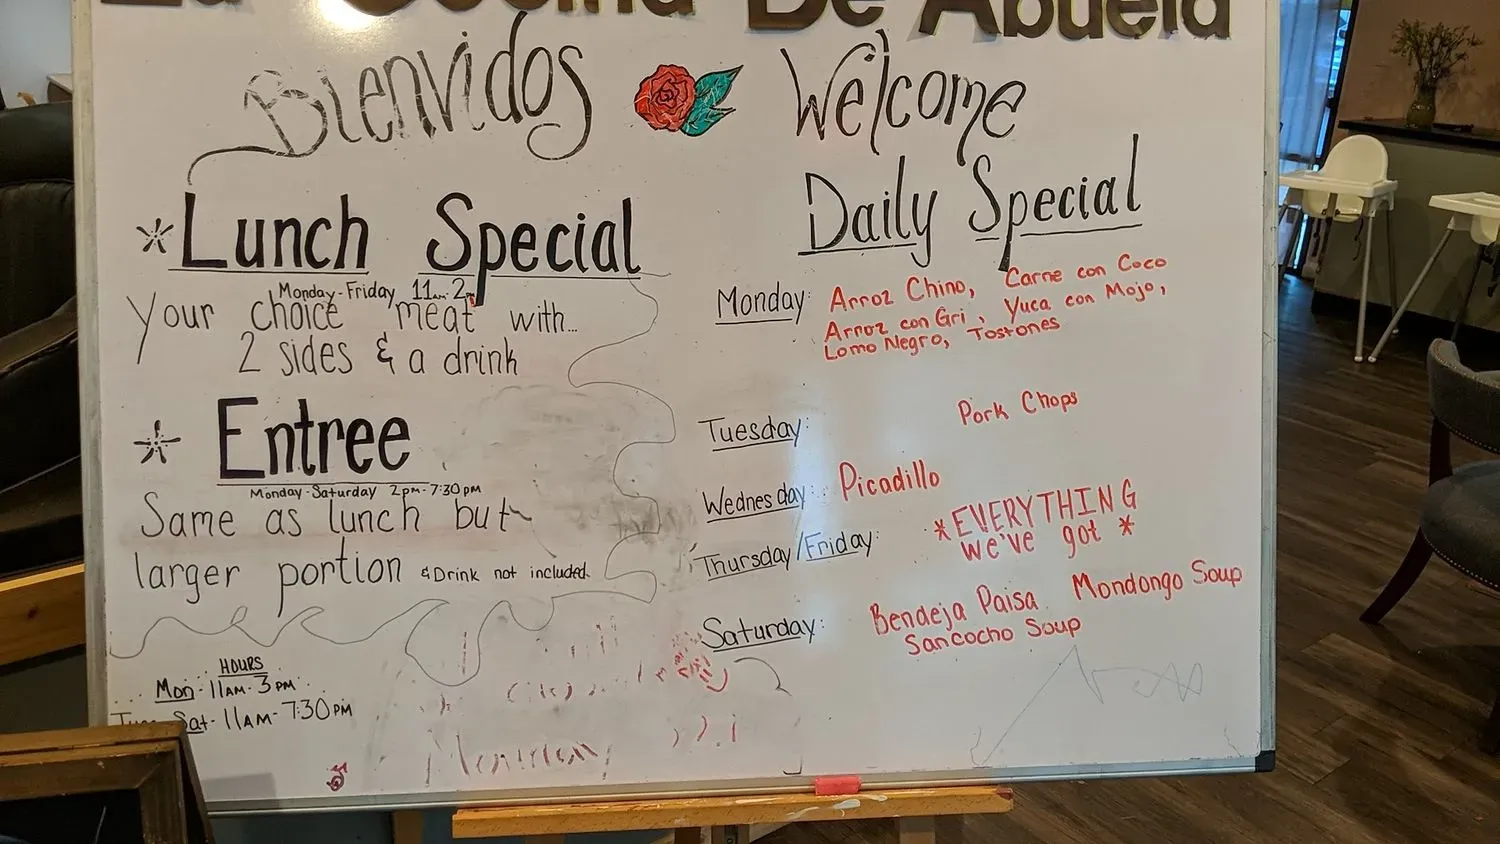 La Cocina De Abuela
Bienvidos Welcome
*Lunch Special
Monday-Friday 11am-2pm
Your choice meat with...
2 sides & a drink
* Entree
Monday-Saturday 2pm-7:30pm
Same as lunch but
larger portion & Drink not included
HOURS
Mon-11AM-3PM
Sat-11AM-7:30PM
Daily Special
Monday: Arroz Chino, Carne con Coco
Arroz con Gri, Yuca con Mojo,
Lomo Negro, Tostones
Tuesday: Pork Chops
Wednesday: Picadillo
Thursday/Friday: *EVERYTHING
we've got *
Saturday: Bendeja Paisa Mondongo Soup
Sancocho Soup